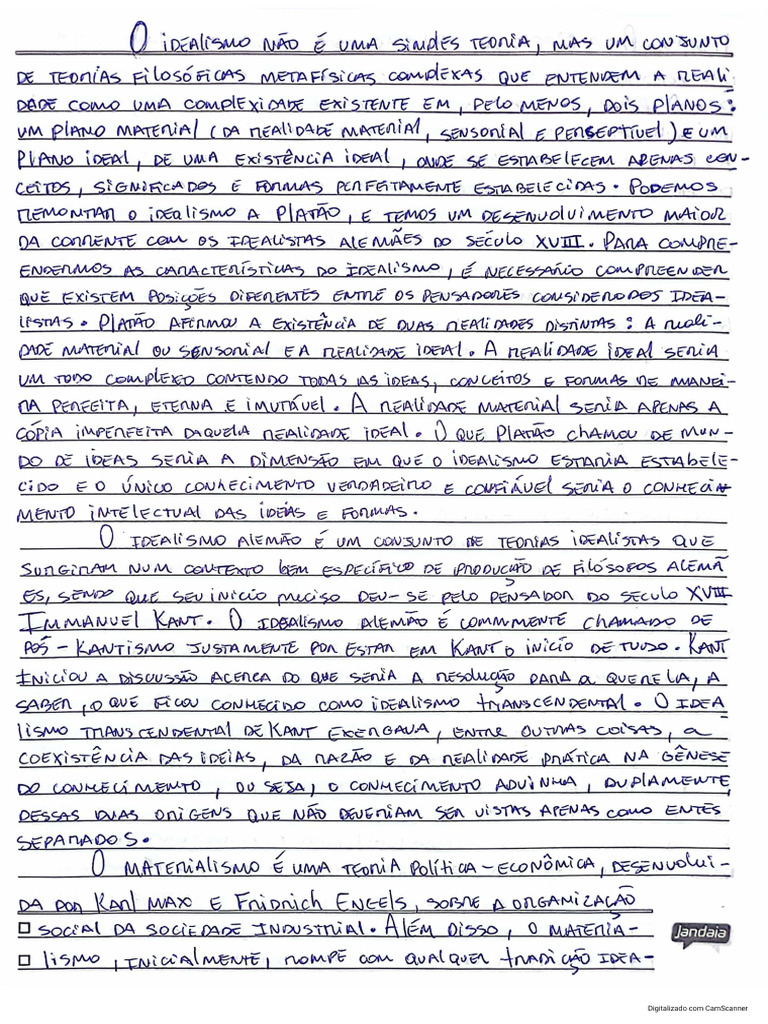 O IDEALISMO NÃO É UMA SIMPLES TEORIA, MAS UM CONJUNTO
DE TEORIAS FILOSÓFICAS METAFÍSICAS COMPLEXAS QUE ENTENDEM A REALI
DADE COMO UMA COMPLEXIDADE EXISTENTE EM, PELO MENOS, DOIS PLANOS:
UM PLANO MATERIAL (DA REALIDADE MATERIAL, SENSORIAL E PERSEPTÍVEL) E UM
PLANO IDEAL, DE UMA EXISTÊNCIA IDEAL, ONDE SE ESTABELECEM APENAS CON-
CEITOS, SIGNIFICADOS E FORMAS PERFEITAMENTE ESTABELECIDAS. PODEMOS
REMONTAR O IDEALISMO A PLATÃO, E TEMOS UM DESENVOLVIMENTO MAIOR
DA CORRENTE COM OS IDEALISTAS ALEMÃES DO SÉCULO XVIII. PARA COMPRE-
ENDERMOS AS CARACTERÍSTICAS DO IDEALISMO, É NECESSÁRIO COMPREENDER
QUE EXISTEM POSIÇÕES DIFERENTES ENTRE OS PENSADORES CONSIDERODOS IDEA-
LISTAS. PLATÃO AFIRMOU A EXISTÊNCIA DE DUAS REALIDADES DISTINTAS: A REALI-
DADE MATERIAL OU SENSORIAL E A REALIDADE IDEAL. A REALIDADE IDEAL SERIA
UM TODO COMPLEXO CONTENDO TODAS AS IDEAS, CONCEITOS E FORMAS DE MANEI-
RA PERFEITA, ETERNA E IMUTÁVEL. A REALIDADE MATERIAL SERIA APENAS A
CÓPIA IMPERFEITA DAQUELA REALIDADE IDEAL. O QUE PLATÃO CHAMOU DE MUN-
DO DE IDEAS SERIA A DIMENSÃO EM QUE O IDEALISMO ESTARIA ESTABELE-
CIDO E O ÚNICO CONHECIMENTO VERDADEIRO E CONFIÁVEL SERIA O CONHECI
MENTO INTELECTUAL DAS IDEIAS E FORMAS.
O IDEALISMO ALEMÃO É UM CONJUNTO DE TEORIAS IDEALISTAS QUE
SURGIRAM NUM CONTEXTO BEM ESPECÍFICO DE PRODUÇÃO DE FILÓSOFOS ALEMÃ
ES, SENDO QUE SEU INÍCIO PRECISO DEU-SE PELO PENSADOR DO SÉCULO XVIII
IMMANUEL KANT. O IDEALISMO ALEMÃO É COMMMENTE CHAMADO DE
PÓS-KANTISMO JUSTAMENTE POR ESTAR EM KANT O INÍCIO DE TUDO. KANT
INICIOU A DISCUSSÃO ACERCA DO QUE SERIA A RESOLUÇÃO PARA A QUERELA, A
SABER, O QUE FICOU CONHECIDO COMO IDEALISMO TRANSCENDENTAL. O IDEA
LISMO TRANSCENDENTAL DE KANT EXERGAVA, ENTRE OUTRAS COISAS, A
COEXISTÊNCIA DAS IDEIAS, DA RAZÃO E DA REALIDADE PRÁTICA NA GÊNESE
DO CONHECIMENTO, OU SEJA, O CONHECIMENTO ADVINHA, DUPLAMENTE,
DESSAS DUAS ORIGENS QUE NÃO DEVERIAM SER VISTAS APENAS COMO ENTES
SEPARADOS.
O MATERIALISMO É UMA TEORIA POLÍTICA-ECONÔMICA, DESENVOLVI-
DA POR KARL MAX E FRIDRICH ENGELS, SOBRE A ORGANIZAÇÃO
SOCIAL DA SOCIEDADE INDUSTRIAL. ALÉM DISSO, O MATERIA-
LISMO, INICIALMENTE, ROMPE COM QUALQUER TRADIÇÃO IDEA-
Jandaia
Digitalizado com CamScanner